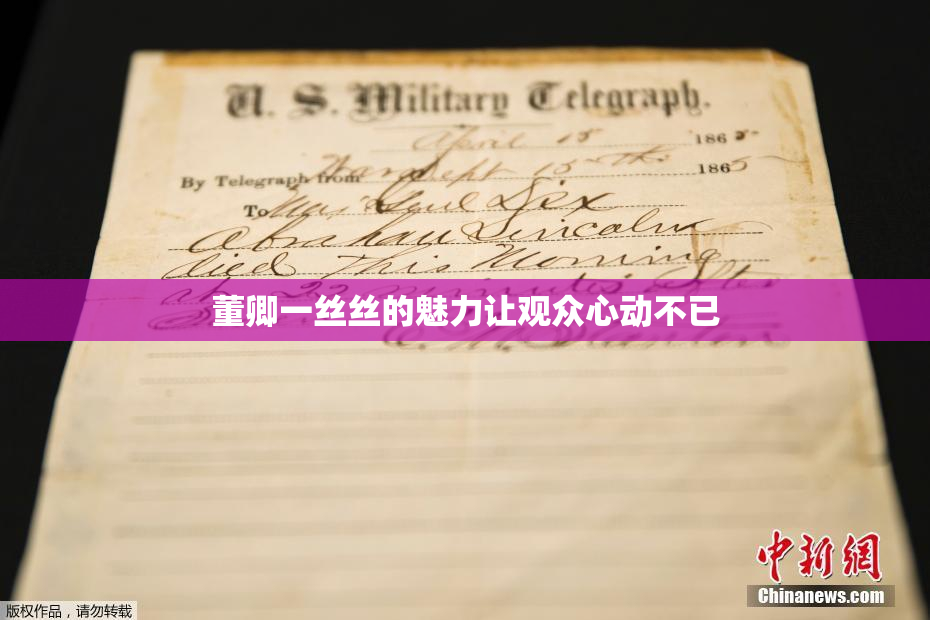 U. S. Military Telegraph.
April 15 1865
By Telegraph from War Dept 15th 1865
To Maj Genl Dix
Abraham Lincoln
died This Morning
at 22 minutes after
董卿一丝丝的魅力让观众心动不已
Stanton
中新网
Chinanews.com
版权作品，请勿转载